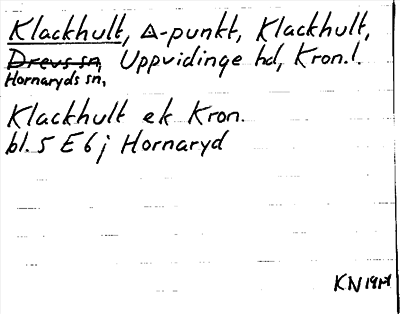 Klackhult, △-punkt, Klackhult,
Drevs sn, Uppvidinge hd, Kron.l.
Hornaryds sn,
Klackhult ek Kron.
bl. 5 E 6 j Hornaryd